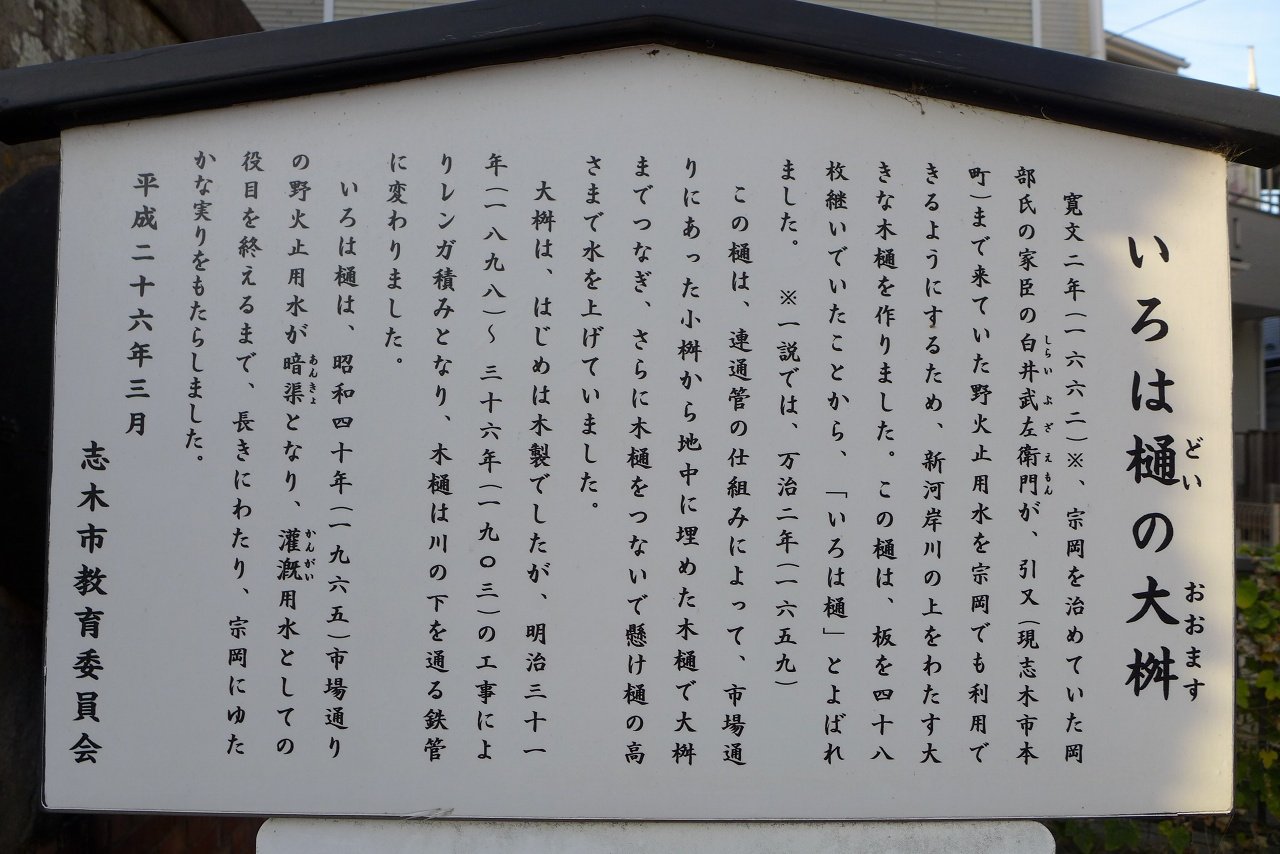 いろは樋の大桝
どい
おおます
寛文二年(一六六二)※、宗岡を治めていた岡
部氏の家臣の白井武左衛門が、引又(現志木市本
しらい ぶざえもん
町)まで来ていた野火止用水を宗岡でも利用で
きるようにするため、新河岸川の上をわたす大
きな木樋を作りました。この樋は、板を四十八
枚継いでいたことから、「いろは樋」とよばれ
ました。 ※一説では、万治二年(一六五九)
この樋は、連通管の仕組みによって、市場通
りにあった小桝から地中に埋めた木樋で大桝
までつなぎ、さらに木樋をつないで懸け樋の高
さまで水を上げていました。
大桝は、はじめは木製でしたが、明治三十一
年(一八九八)〜 三十六年(一九〇三)の工事によ
りレンガ積みとなり、木樋は川の下を通る鉄管
に変わりました。
いろは樋は、昭和四十年(一九六五)市場通り
の野火止用水が暗渠となり、灌漑用水としての
あんきょ
かんがい
役目を終えるまで、長きにわたり、宗岡にゆた
かな実りをもたらしました。
平成二十六年三月
志木市教育委員会